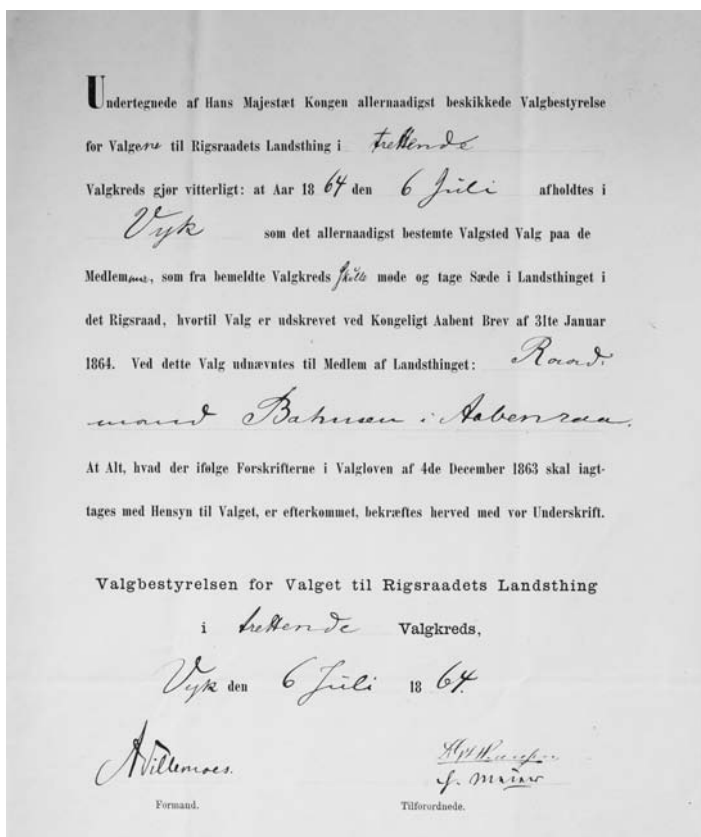 Undertegnede af Hans Majestæt Kongen allernaadigst beskikkede Valgbestyrelse
for Valgene til Rigsraadets Landsthing i trettende
Valgkreds gjør vitterligt: at Aar 1864 den 6 Juli afholdtes i
Vyk som det allernaadigst bestemte Valgsted Valg paa de
Medlemmer, som fra bemeldte Valgkreds skulle møde og tage Sæde i Landsthinget i
det Rigsraad, hvortil Valg er udskrevet ved Kongeligt Aabent Brev af 31te Januar
1864. Ved dette Valg udnævntes til Medlem af Landsthinget: Raad-
mand Bahnsen i Aabenraa.
At Alt, hvad der ifølge Forskrifterne i Valgloven af 4de December 1863 skal iagt-
tages med Hensyn til Valget, er efterkommet, bekræftes herved med vor Underskrift.
Valgbestyrelsen for Valget til Rigsraadets Landsthing
i trettende Valgkreds,
Vyk den 6 Juli 1864.
Villemoes.
Formand. Tilforordnede.